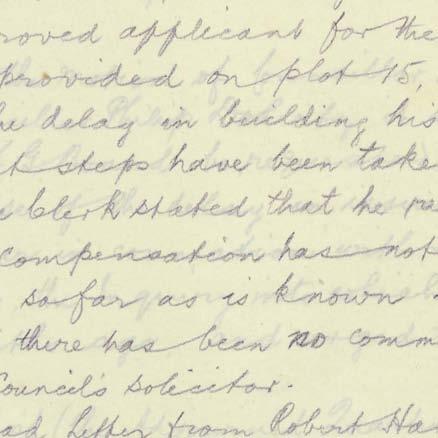 roved applicant for the
provided on plot 15,
he delay in building his
t steps have been take
Clerk stated that he re
compensation has not
so far as is known
there has been no comm
Council's solicitor.
ad letter from Robert Ha